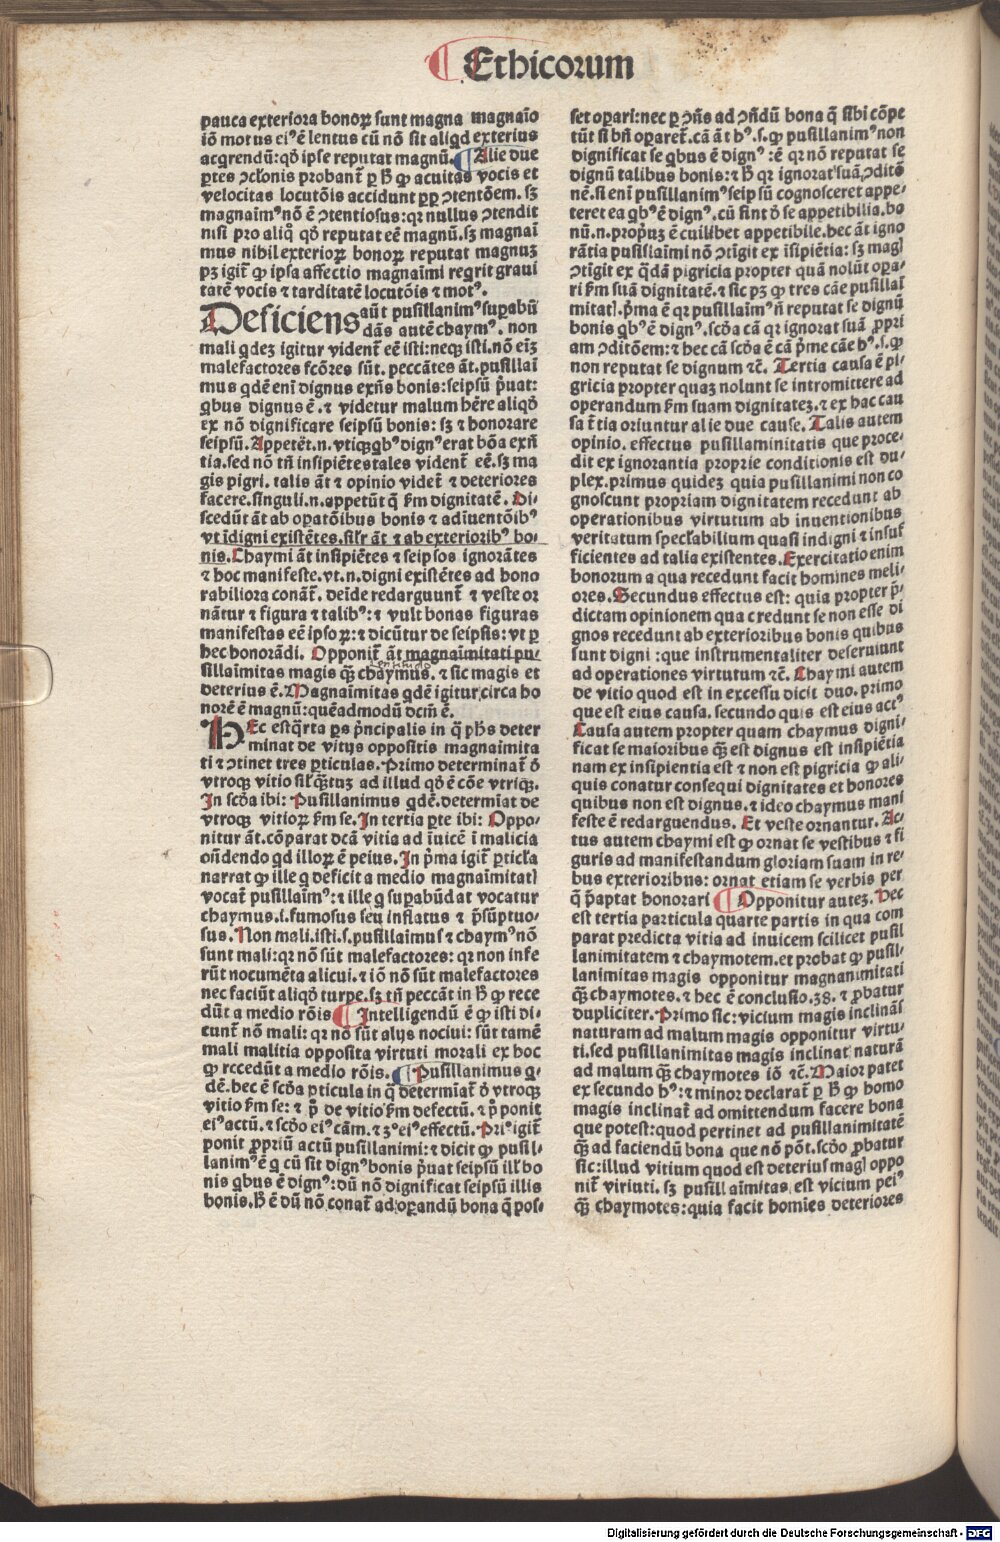 Ethicorum
pauca exteriora bonoꝝ sunt magna magnaīo
iō motus ei⁹ ē lentus cū nō sit aliqd exterius
acqrendū: qō ipse reputat magnū. Alie due
ꝑtes ꝯclonis probant̄ ꝑ ħ ꝙ acuitas vocis et
velocitas locutōis accidunt ꝓpꝑ ꝯtentōem. sꝫ
magnaim⁹ nō ē ꝯtentiosus: qꝛ nullus ꝯtendit
nisi pro aliq̄ qō reputat eē magnū. sꝫ magnaī
mus nihil exterioꝝ bonoꝝ reputat magnuꝫ
pꝫ igit̄ ꝙ ipsa affectio magnaimi reqrit graui
tatē vocis ⁊ tarditatē locutōis ⁊ mot⁹.
Deficiens aūt pusillanim⁹ suꝑabū
dās autē chaym⁹. non
mali qdeꝫ igitur vident̄ eē isti: neqꝫ isti. nō eīꝫ
malefactores fcōres sūt. peccātes āt. pusillaī
mus qdē eni dignus exn̄s bonis: seipsū p̄uat:
qbus dignus ē. ⁊ videtur malum hēre aliqō
ex nō dignificare seipsū bonis: sꝫ ⁊ honorare
seipsū. Appetēt .n. vtiqꝫ qb⁹ dign⁹ erat bōa exn̄
tia. sed nō tn̄ insipiētes tales vident̄ eē. sꝫ ma
gis pigri. talis āt ⁊ opinio videt̄ ⁊ deteriores
facere. singuli .n. appetūt q̄ ẜm dignitatē. Di
scedūt āt ab oꝑatōibus bonis ⁊ adīuentōib⁹
vt īdigni existētes. silr āt ⁊ ab exteriorib⁹ bo
nis. Chaymi āt insipiētes ⁊ seipsos ignorātes
⁊ hoc manifeste. vt .n. digni existētes ad hono
rabiliora conāt̄. deīde redarguunt̄ ⁊ veste or
nātur ⁊ figura ⁊ talib⁹: ⁊ vult bonas figuras
manifestas eē ipsoꝝ: ⁊ dicūtur de seipsis: vt ꝑ
hec honorādi. Opponit̄ āt magnaīmitati pu
sillaimitas magis q̄ꝫ chaymus. ⁊ sic magis et
deterius ē. Magnaīmitas qdē igitur circa ho
norē ē magnū: quēadmodū dcm̄ ē.
Hec est q̄rta ꝑs p̄ncipalis in q̄ phs deter
minat de vitijs oppositis magnaimita
ti ⁊ ꝯtinet tres ꝑticulas. Primo determinat ō
vtroqꝫ vitio sil' q̄ꝫtuꝫ ad illud qō ē cōe vtriqꝫ.
In scōa ibi: Pusillanimus qdē. determīat de
vtroqꝫ vitioꝝ ẜm se. In tertia ꝑte ibi: Oppo-
nitur āt. cōparat dcā vitia ad īuicē ī malicia
on̄dendo qd illoꝝ ē peius. In p̄ma igit̄ ꝑticl'a
narrat ꝙ ille q deficit a medio magnaimitatꝭ
vocat̄ pusillaim⁹: ⁊ ille q suꝑabūdat vocatur
chaymus .i. fumosus seu inflatus ⁊ p̄sūptuo-
sus. Non mali. isti .s. pusillaimus ⁊ chaym⁹ nō
sunt mali: qꝛ nō sūt malefactores: qꝛ non infe
rūt nocumēta alicui. ⁊ iō nō sūt malefactores
nec faciūt aliqō turpe. sꝫ tn̄ peccāt in ħ ꝙ rece
dūt a medio rōis. Intelligendū ē ꝙ isti di-
cunt̄ nō mali: qꝛ nō sūt alijs nociui: sūt tamē
mali malitia opposita virtuti morali ex hoc
ꝙ recedūt a medio rōis. Pusillanimus q-
dē. hec ē scōa ꝑticula in q̄ determīat̄ ō vtroqꝫ
vitio ẜm se: ⁊ p̄ de vitio ẜm defectū. ⁊ p̄ ponit
ei⁹ actū. ⁊ scōo ei⁹ cām. ⁊ 3⁰ ei⁹ effectū. Pri⁹ igit̄
ponit ꝓpriū actū pusillanimi: ⁊ dicit ꝙ pusil-
lanim⁹ ē q cū sit dign⁹ bonis p̄uat seipsū ill' bo
nis qbus ē dign⁹: dū nō dignificat seipsū illis
bonis. ħ ē dū nō conat̄ ad oꝑandū bona q̄ pos-
set oꝑari: nec ꝑ ꝯn̄s ad ꝯn̄dū bona q̄ sibi cōpe
tūt si bn̄ oꝑaret̄. cā āt h⁹ .s. ꝙ pusillanim⁹ non
dignificat se qbus ē dign⁹: ē qꝛ nō reputat se
dignū talibus bonis: ⁊ ħ qꝛ ignorat suā ꝯditō
nē. si eni pusillanim⁹ seipsū cognosceret appe-
teret ea qb⁹ ē dign⁹. cū sint ō se appetibilia. bo
nū .n. propꝛiū ē cuilibet appetibile. hec āt igno
rātia pusillaimi nō ꝯtīgit ex īsipiētia: sꝫ magꝭ
ꝯtīgit ex q̄dā pigricia propter quā nolūt oꝑa-
ri ẜm suā dignitatē. ⁊ sic pꝫ ꝙ tres cāe pusillaī
mitatꝭ. p̄ma ē qꝛ pusillaim⁹ n̄ reputat se dignū
bonis qb⁹ ē dign⁹. scōa cā qꝛ ignorat suā ꝓpri
am ꝯditōem: ⁊ hec cā scōa ē cā p̄me cāe h⁹ .s. ꝙ
non reputat se dignum ⁊c̄. Tertia causa ē pi-
gricia propter quaꝫ nolunt se intromittere ad
operandum ẜm suam dignitateꝫ. ⁊ ex hac cau
sa t̄tia oriuntur alie due cause. Talis autem
opinio. effectus pusillaminitatis que proce-
dit ex ignorantia proprie conditionis est du-
plex. primus quideꝫ quia pusillanimi non co
gnoscunt propriam dignitatem recedunt ab
operationibus virtutum ab inuentionibus
veritatum speclabilium quasi indigni ⁊ insuf
ficientes ad talia existentes. Exercitatio enim
bonorum a qua recedunt facit homines meli-
ores. Secundus effectus est: quia propter p̄-
dictam opinionem qua credunt se non esse di
gnos recedunt ab exterioribus bonis quibus
sunt digni: que instrumentaliter deseruiunt
ad operationes virtutum ⁊c̄. Chaymi autem
de vitio quod est in excessu dicit duo. primo
que est eius causa. secundo quis est eius act⁹
Causa autem propter quam chaymus digni-
ficat se maioribus q̄ꝫ est dignus est insipiētia
nam ex insipientia est ⁊ non est pigricia ꝙ ali-
quis conatur consequi dignitates et honores
quibus non est dignus. ⁊ ideo chaymus mani
feste ē redarguendus. Et veste ornantur. Ac-
tus autem chaymi est ꝙ ornat se vestibus ⁊ fi
guris ad manifestandum gloriam suam in re-
bus exterioribus: ornat etiam se verbis per
q̄ p̄aptat honorari Opponitur auteꝫ. Hec
est tertia particula quarte partis in qua com
parat predicta vitia ad inuicem scilicet pusil
lanimitatem ⁊ chaymotem. et probat ꝙ pusil-
lanimitas magis opponitur magnanimitati
q̄ꝫ chaymotes. ⁊ hec ē conclusio .38. ⁊ ꝓbatur
dupliciter. Primo sic: vicium magis inclinās
naturam ad malum magis opponitur virtu-
ti. sed pusillanimitas magis inclinat naturā
ad malum q̄ꝫ chaymotes iō ⁊c̄. Maior patet
ex secundo h⁹: ⁊ minor declarat̄ ꝑ ħ ꝙ homo
magis inclinat̄ ad omittendum facere bona
que potest: quod pertinet ad pusillanimitatē
q̄ꝫ ad faciendū bona que nō pōt. scōo ꝓbatur
sic: illud vitium quod est deterius magꝭ oppo
nit̄ virtuti. sꝫ pusillaimitas est vicium pei⁹
q̄ꝫ chaymotes: quia facit homīes deteriores
Digitalisierung gefördert durch die Deutsche Forschungsgemeinschaft - DFG